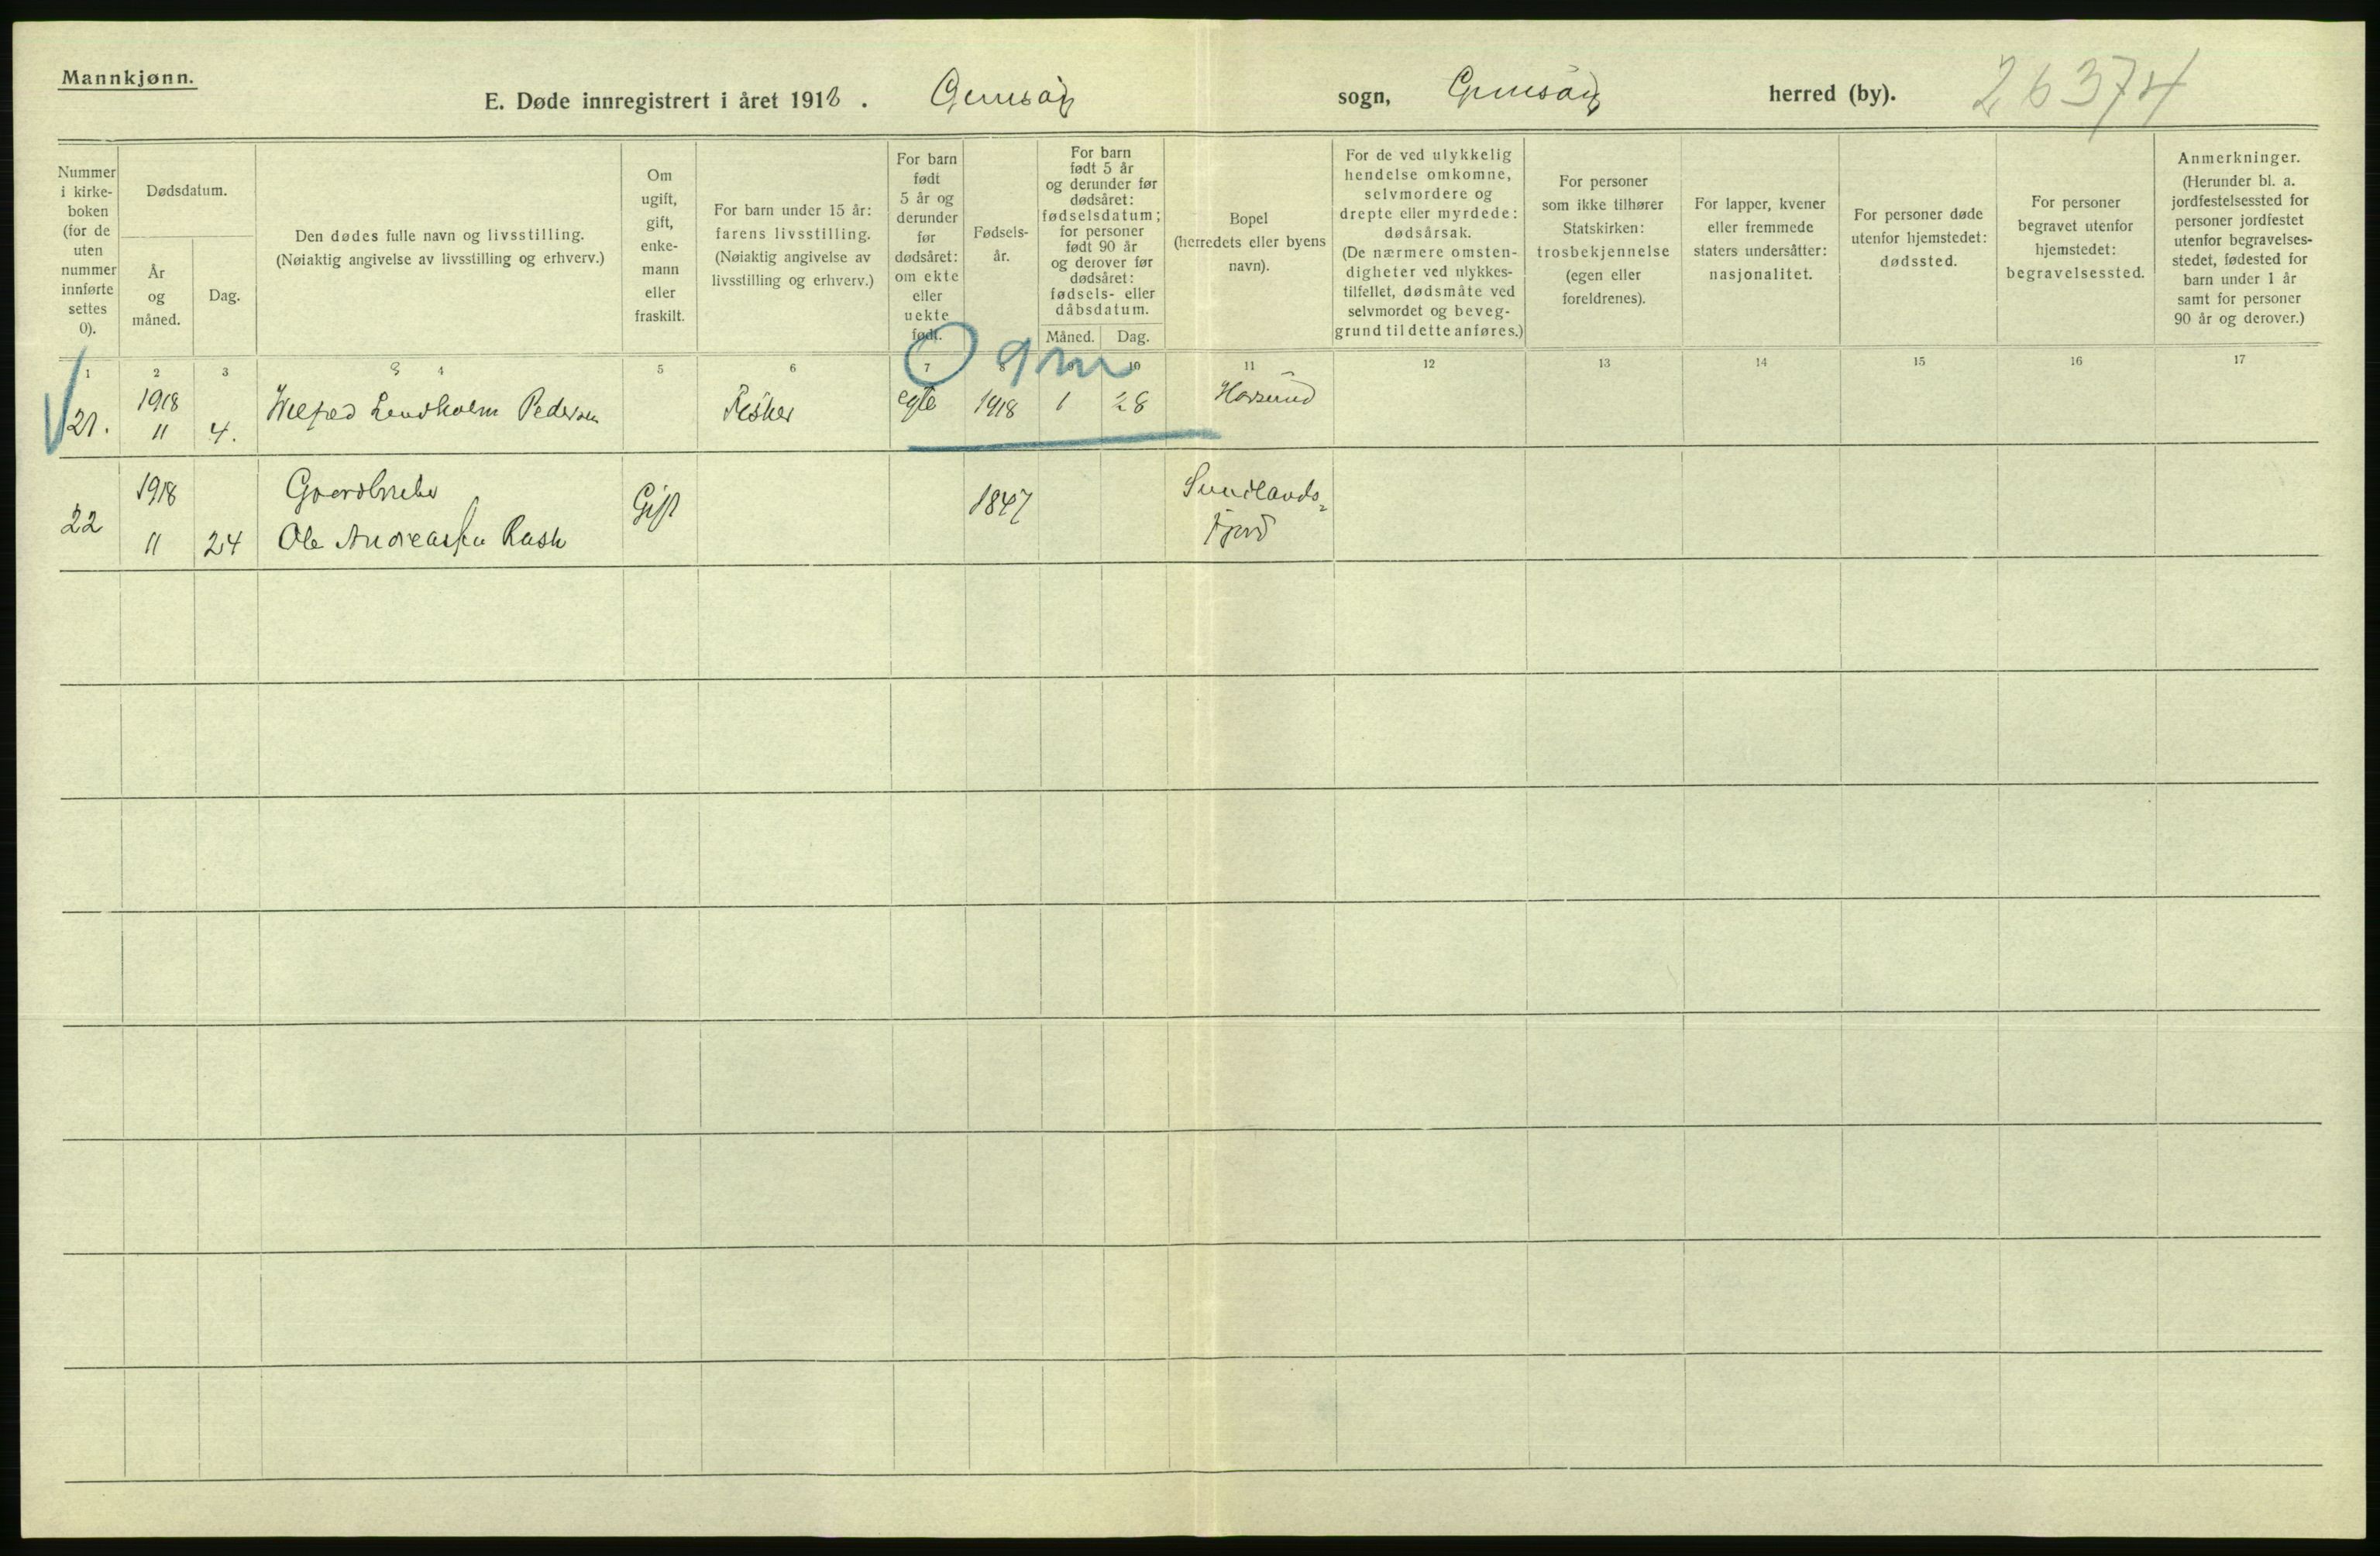 Mannkjønn.
E. Døde innregistrert i året 1918. Gimsøy sogn, Gimsøy herred (by). 26374
Nummer i kirke- boken (for de uten nummer innførte settes 0).
Dødsdatum.
År og måned.
Dag.
Den dødes fulle navn og livsstilling.
(Nøiaktig angivelse av livsstilling og erhverv.)
Om ugift, gift, enke- mann eller fraskilt.
For barn under 15 år: farens livsstilling.
(Nøiaktig angivelse av livsstilling og erhverv.)
For barn født 5 år og derunder før dødsåret: om ekte eller uekte født.
Fødsels- år.
For barn født 5 år og derunder før dødsåret: fødselsdatum; for personer født 90 år og derover før dødsåret: fødsels- eller dåbsdatum.
Måned. Dag.
Bopel (herredets eller byens navn).
For de ved ulykkelig hendelse omkomne, selvmordere og drepte eller myrdede: dødsårsak.
(De nærmere omsten- digheter ved ulykkes- tilfellet, dødsmåte ved selvmordet og beveg- grund til dette anføres.)
For personer som ikke tilhører Statskirken: trosbekjennelse (egen eller foreldrenes).
For lapper, kvener eller fremmede staters undersåtter: nasjonalitet.
For personer døde utenfor hjemstedet: dødssted.
For personer begravet utenfor hjemstedet: begravelsessted.
Anmerkninger.
(Herunder bl. a. jordfestelsessted for personer jordfestet utenfor begravelses- stedet, fødested for barn under 1 år samt for personer 90 år og derover.)
1 2 3 4 5 6 7 8 9 10 11 12 13 14 15 16 17
0 9 m
21. 1918 11 4. Wilfred Lendholm Pedersen Fisker egte 1918 1 28 Hovsund
22 1918 11 24 Gaardbruker
Ole Andreassen Rask Gift 1847 Sundlands-
fjord